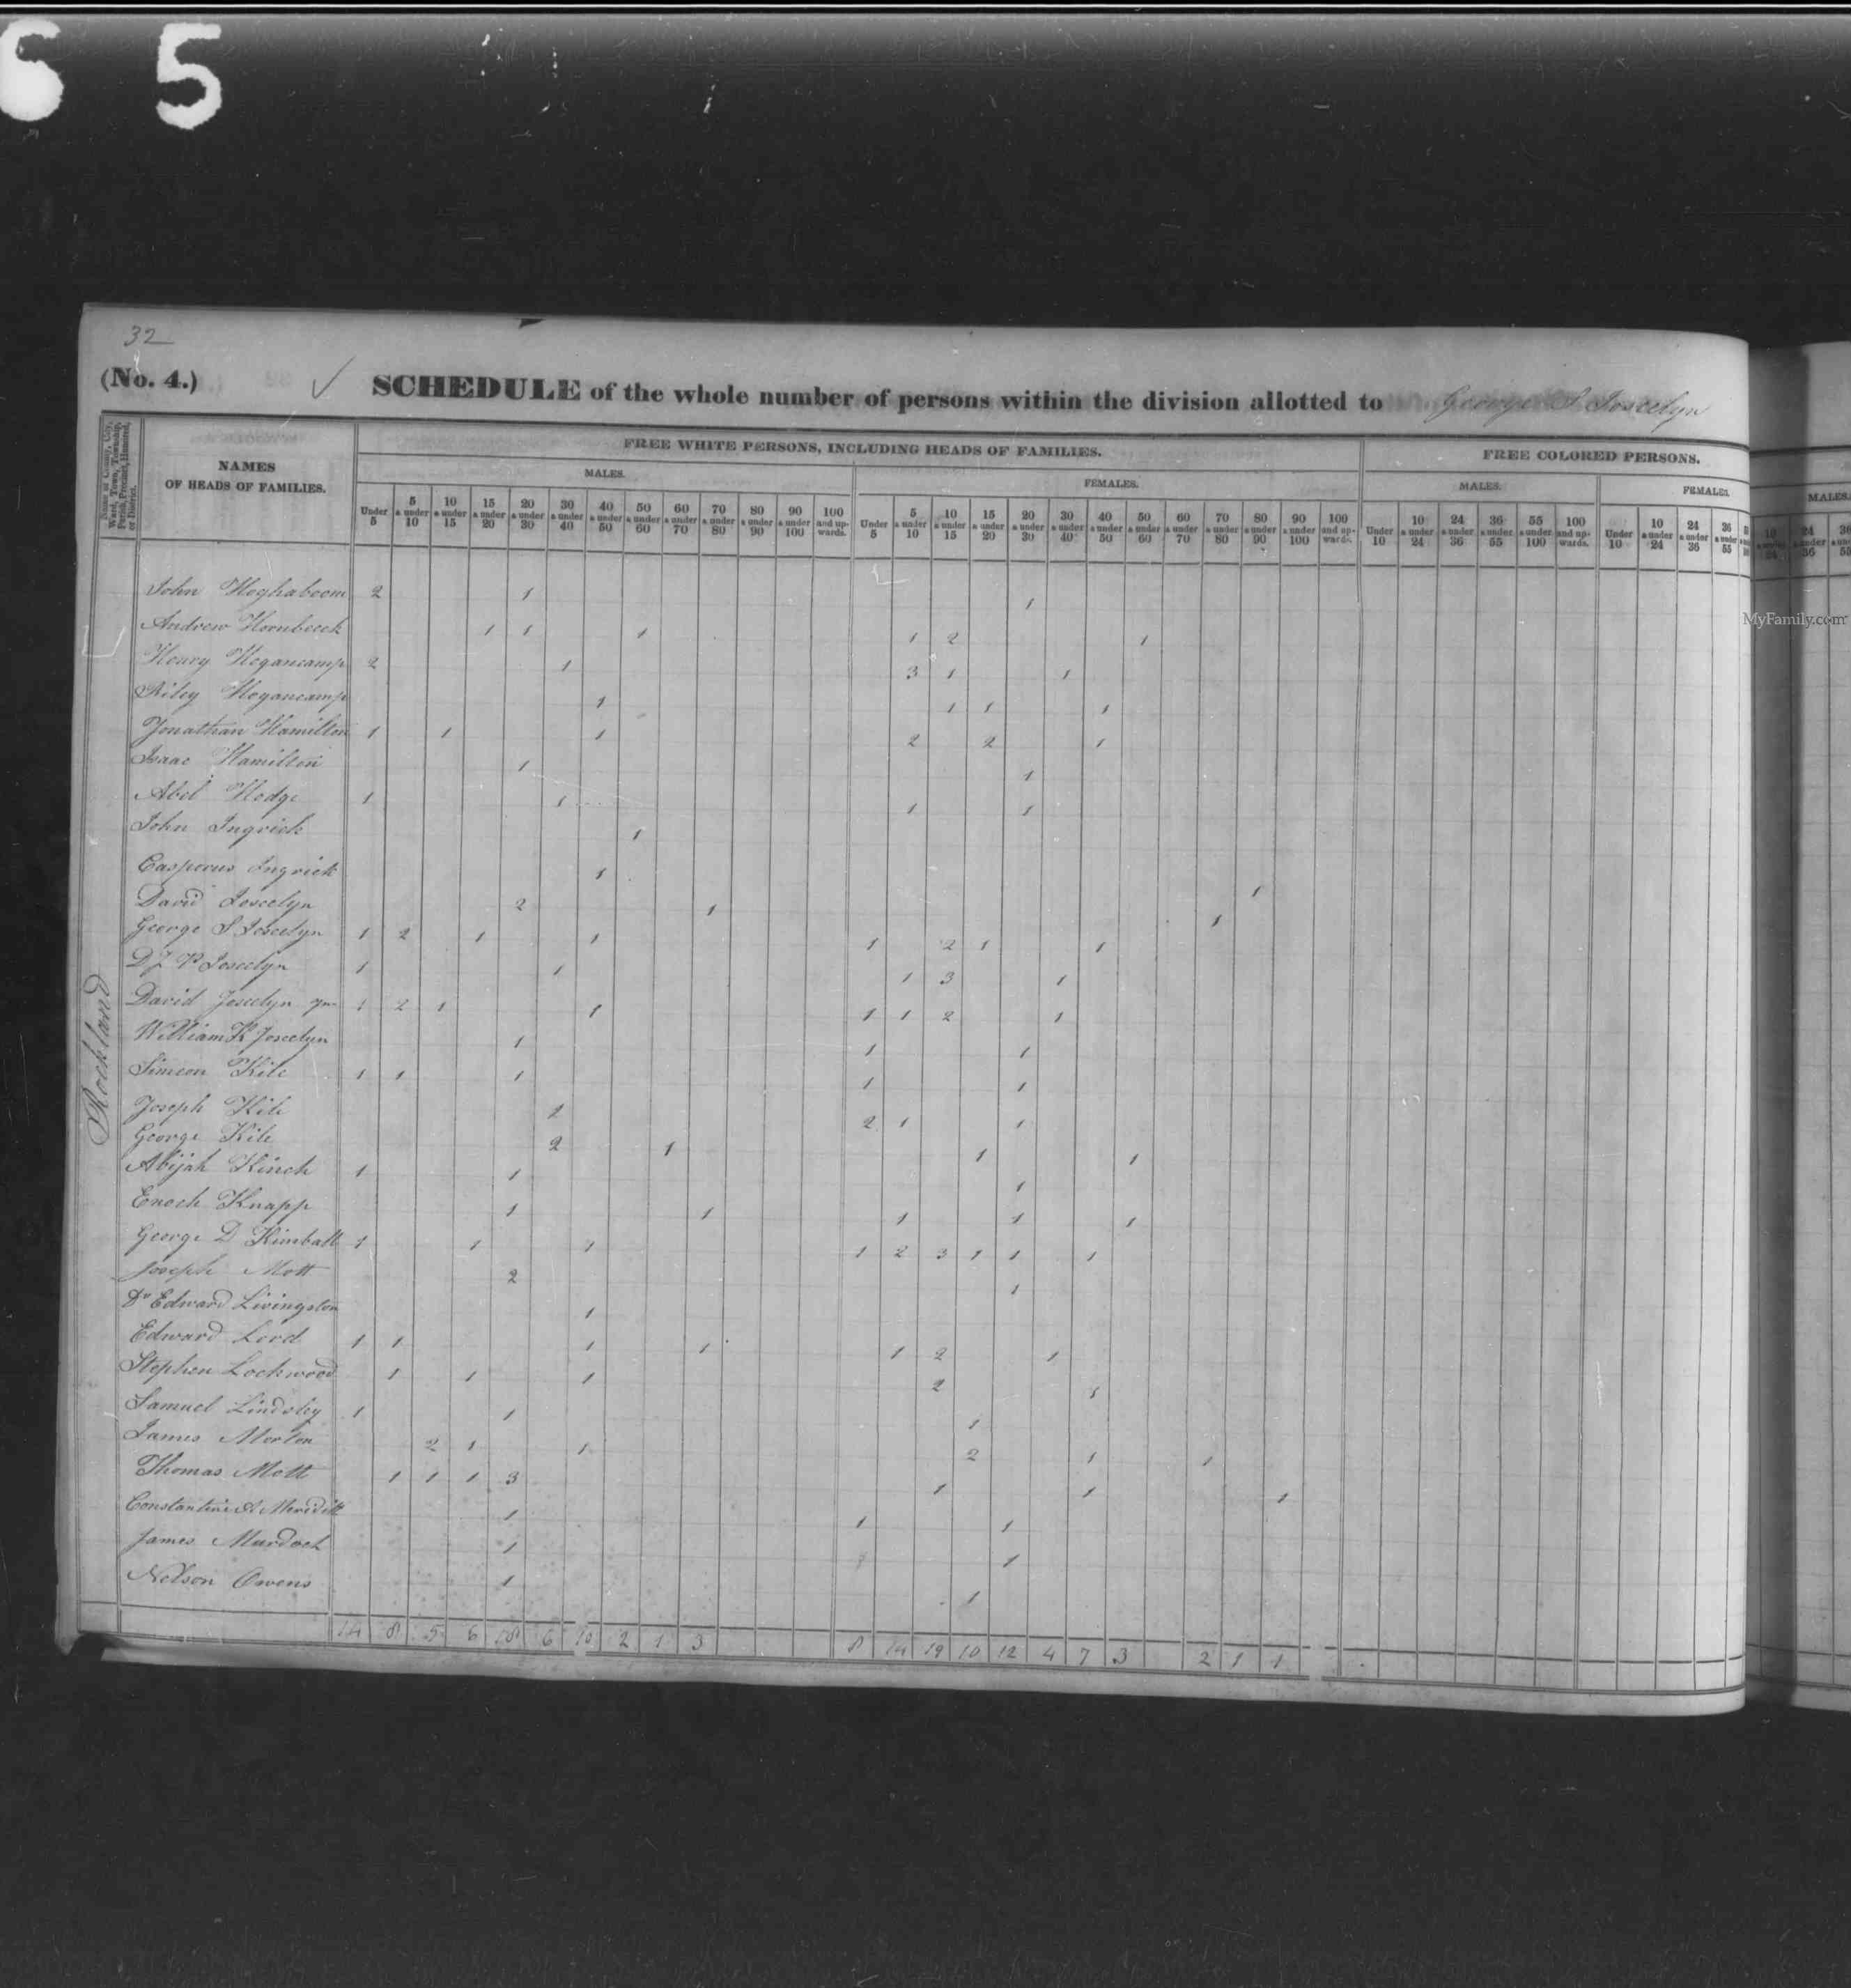 S 5
32
(No. 4.) ✓ SCHEDULE of the whole number of persons within the division allotted to George S Joscelyn
Name of County, City, Ward, Town, Township, Parish, Precinct, Hundred, or District.
NAMES OF HEADS OF FAMILIES.
FREE WHITE PERSONS, INCLUDING HEADS OF FAMILIES.
FREE COLORED PERSONS.
MALES. FEMALES. MALES. FEMALES. MALES.
Under 5 5 & under 10 10 & under 15 15 & under 20 20 & under 30 30 & under 40 40 & under 50 50 & under 60 60 & under 70 70 & under 80 80 & under 90 90 & under 100 100 and upwards. Under 5 5 & under 10 10 & under 15 15 & under 20 20 & under 30 30 & under 40 40 & under 50 50 & under 60 60 & under 70 70 & under 80 80 & under 90 90 & under 100 100 and upwards. Under 10 10 & under 24 24 & under 36 36 & under 55 55 & under 100 100 and upwards. Under 10 10 & under 24 24 & under 36 36 & under 55
MyFamily.com
Rockland
John Hoghaboom 2 1 1
Andrew Hornbeeck 1 1 1 1 2 1
Henry Hogancamp 2 1 3 1 1
Riley Hogancamp 1 1 1 1
Jonathan Hamilton 1 1 1 2 2 1
Isaac Hamilton 1 1
Abel Hodge 1 1 1 1
John Ingrick 1
Casperus Ingrick 1 1
David Joscelyn 2 1 1
George S Joscelyn 1 2 1 1 1 2 1 1
D J P Joscelyn 1 1 1 3 1
David Joscelyn Jun 1 2 1 1 1 1 2 1
William K Joscelyn 1 1 1
Simeon Kile 1 1 1 1 1
Joseph Kile 2 2 1 1
George Kile 2 1 1 1
Abijah Kinch 1 1 1
Enoch Knapp 1 1 1 1 1
George D Kimball 1 1 1 1 2 3 1 1 1
Joseph Mott 2 1
Dr Edward Livingston 1
Edward Lord 1 1 1 1 1 2 1
Stephen Lockwood 1 1 1 2 1
Samuel Lindsley 1 1 1
James Morton 2 1 1 2 1 1
Thomas Mott 1 1 1 3 1 1 1
Constantine A Meridith 1 1 1
James Murdoch 1 1 1
Nelson Owens 1 1
14 8 5 6 18 6 10 2 1 3 8 14 19 10 12 4 7 3 2 1 1